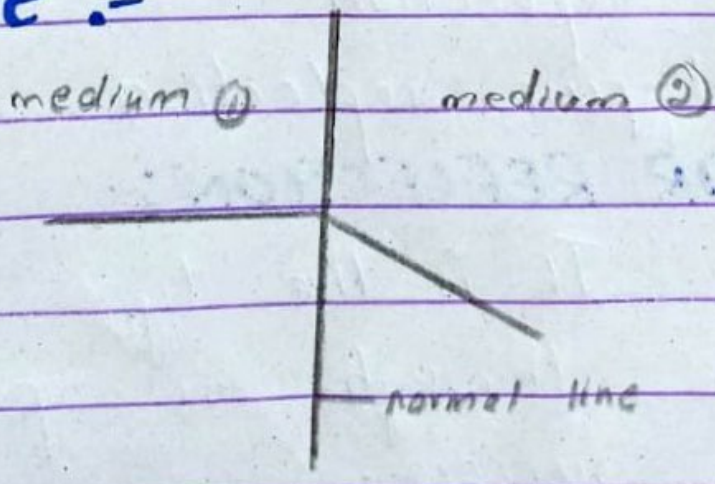 medium ① medium ②
normal line